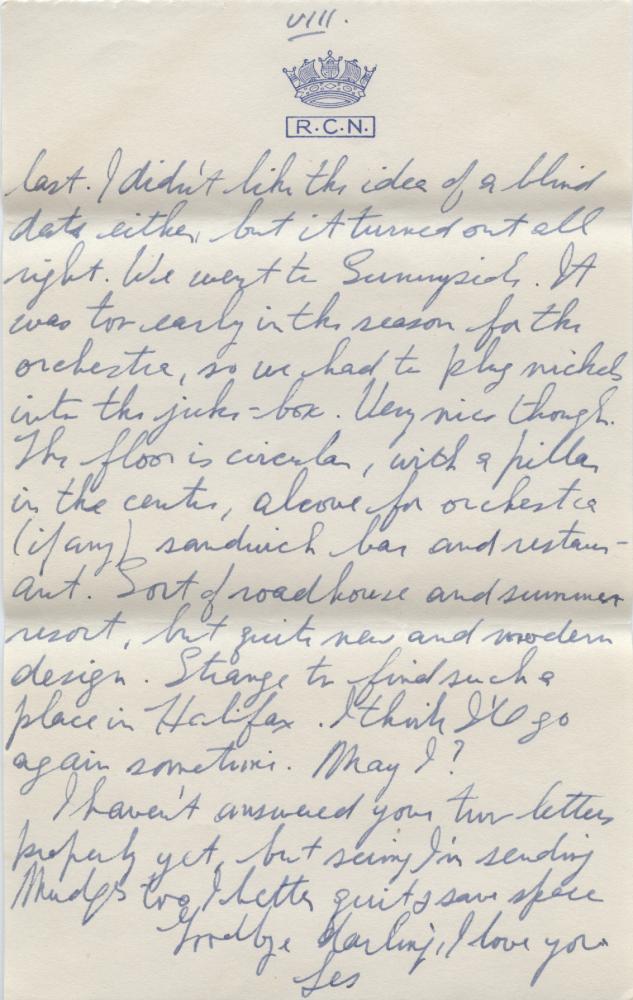 VIII.
R.C.N.
last. I didn't like the idea of a blind
date either, but it turned out all
right. We went to Sunnyside. It
was too early in the season for the
orchestra, so we had to plug nickels
into the juke-box. Very nice though.
The floor is circular, with a pillar
in the centre, alcove for orchestra
(if any) sandwich bar and restaur-
ant. Sort of roadhouse and summer
resort, but quite new and modern
design. Strange to find such a
place in Halifax. I think I'll go
again sometime. May I?
I haven't answered your two letters
properly yet, but seeing I'm sending
Mudge's too I better quit & save space
Goodbye darling, I love you
Les